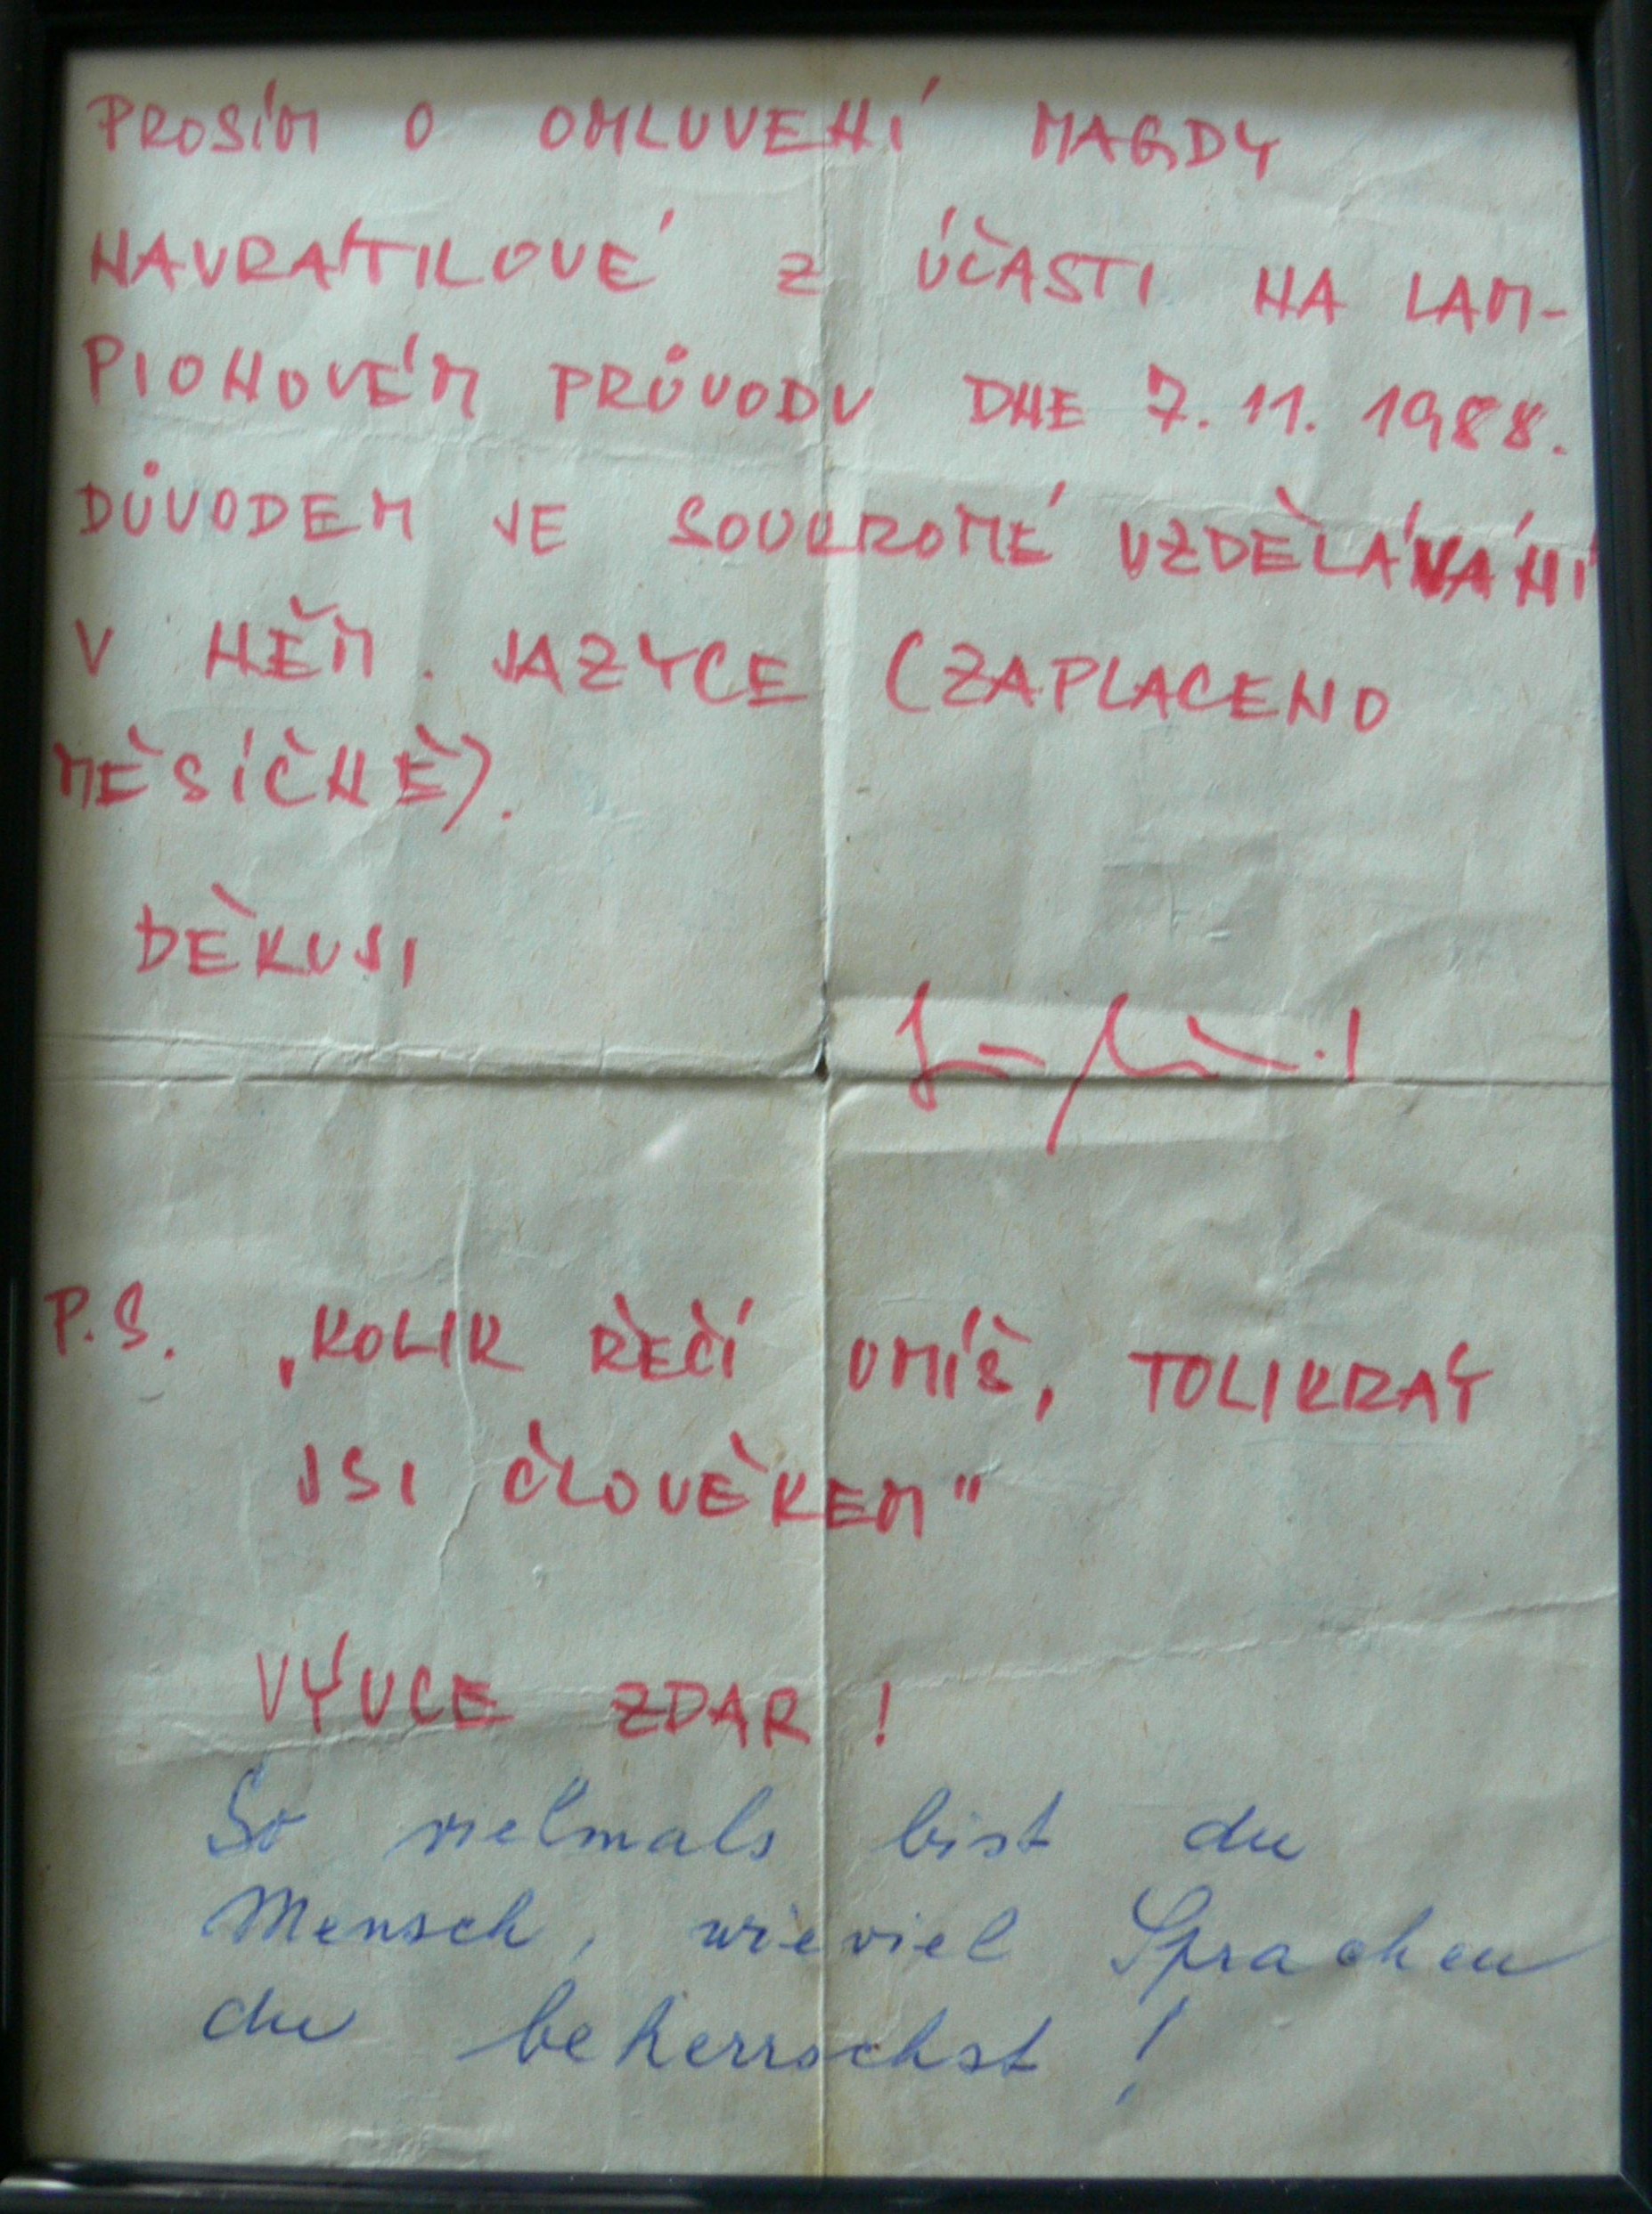 PROSÍM O OMLUVENÍ MAGDY
NAVRÁTILOVÉ Z ÚČASTI NA LAM-
PIONOVÉM PRŮVODU DNE 7. 11. 1988.
DŮVODEM JE SOUKROMÉ VZDĚLÁVÁNÍ
V NĚM. JAZYCE (ZAPLACENO
MĚSÍČNĚ).
DĚKUJI
P.S. „KOLIK ŘEČÍ UMÍŠ, TOLIKRÁT
JSI ČLOVĚKEM"
VÝUCE ZDAR!
So vielmals bist du
Mensch, wieviel Sprachen
du beherrschst!